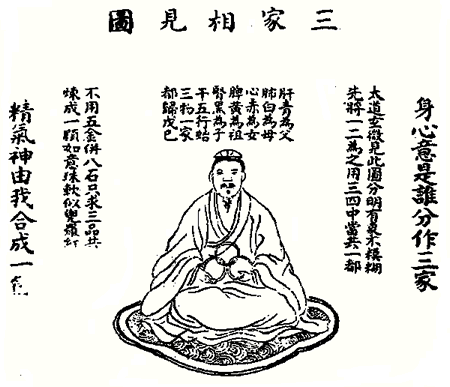 三家相見圖
身心意是誰分作三家
太道玄微見此圖分明有象不模糊
先將一二為之用三四中當共一都
肝青為父
肺白為母
心赤為女
脾黃為祖
腎黑為子
子五行始
三物一家
都歸戊己
不用五金併八石只求三品共
煉成一顆如意珠軟似兜羅紅
精氣神由我合成一